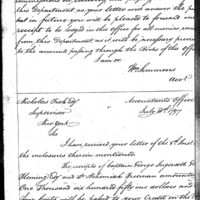 this Department as your letter will answer the p
but in future you will be pleased to forward one
receipt to be lodged in this office for all monies,
from this Department as it will be necessary previous
to the amount passing through the Books of this office
I am &c
Wm Simmons
acct
Nicholas Fish Esqr
Supervisor
New York
Accountants Office
July 1797
Sir
I have received your letter of the 1st Inst
the enclosures therein mentioned.
The receipts of Captain George Ingersoll
Fleming Esqr and Dr Nehemiah Freeman amounting
One Thousand six hundred fifty six dollars and
cents will be passed to your Credit on the